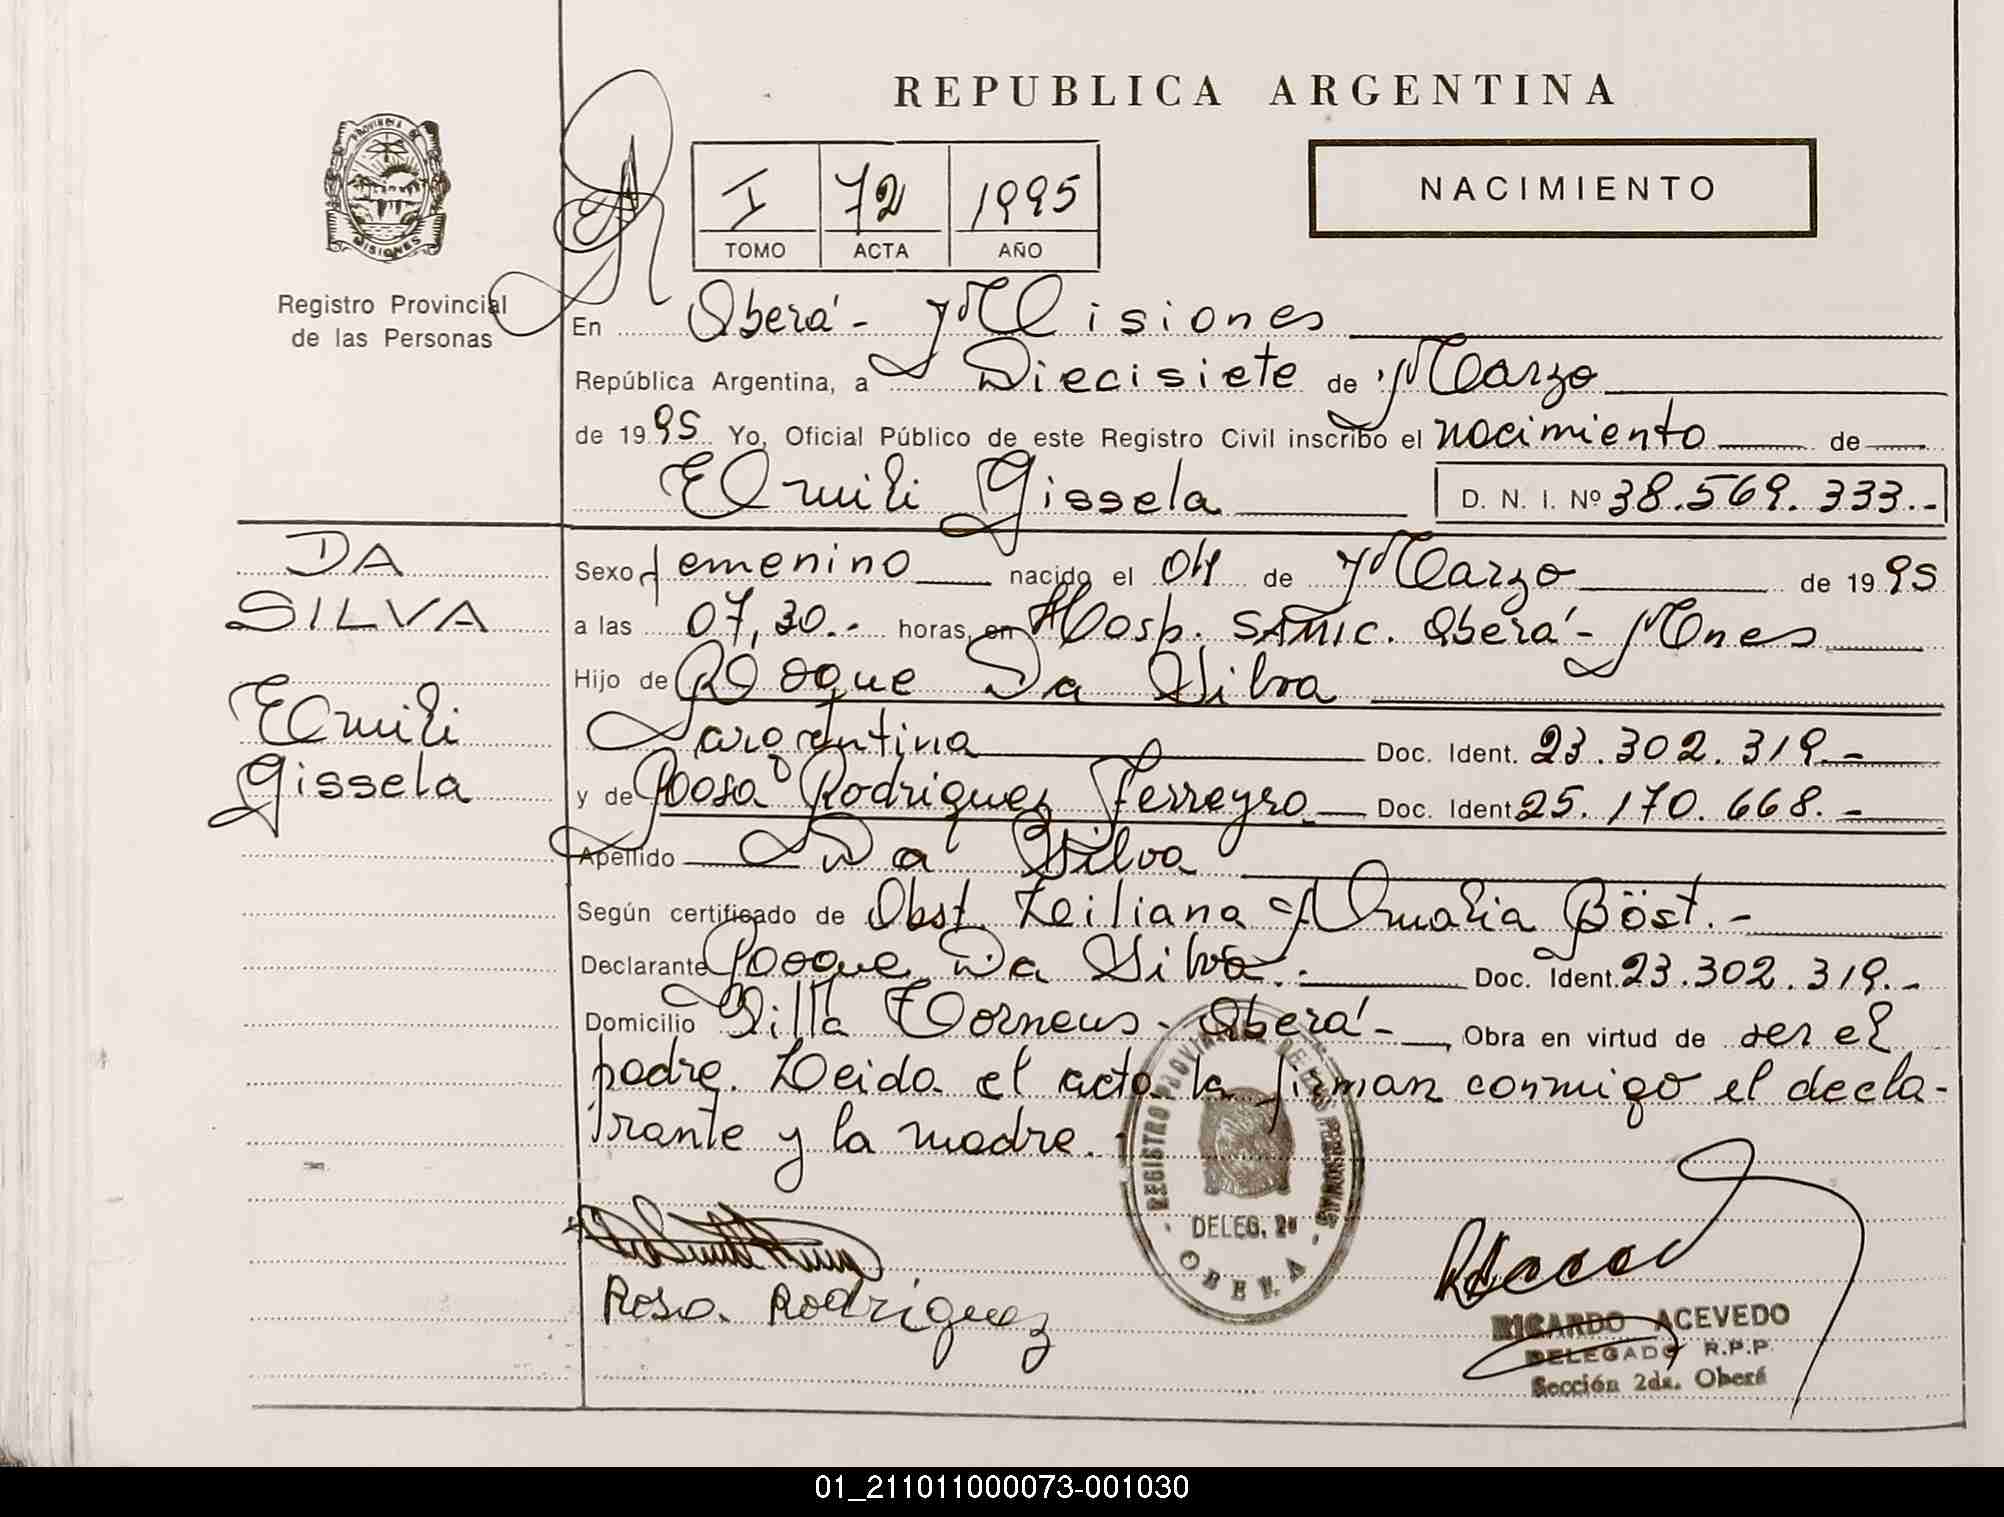 REPUBLICA ARGENTINA
PROVINCIA DE
MISIONES
Registro Provincial
de las Personas
I 72 1995
TOMO ACTA AÑO
NACIMIENTO
En Oberá - Misiones
República Argentina, a Diecisiete de Marzo
de 1995 Yo, Oficial Público de este Registro Civil inscribo el nacimiento de
Emili Gissela D. N. I. Nº 38.569.333.-
DA
SILVA
Emili
Gissela
Sexo femenino nacido el 04 de Marzo de 1995
a las 07,30.- horas, en Hosp. SAMIC. Oberá - Mnes
Hijo de Roque Da Silva
argentina Doc. Ident. 23.302.319.-
y de Rosa Rodriguez Ferreyro Doc. Ident. 25.170.668.-
Apellido Da Silva
Según certificado de Obst. Leiliana Amalia Böst.-
Declarante Roque Da Silva.- Doc. Ident. 23.302.319.-
Domicilio Villa Torneus - Oberá - Obra en virtud de ser el
padre. Leida el acta la firman conmigo el decla-
rante y la madre.-
REGISTRO PROVINCIAL DE LAS PERSONAS
DELEG. 2a
OBERA
Rosa Rodriguez
RICARDO ACEVEDO
DELEGADO R.P.P.
Sección 2da. Oberá
01_211011000073-001030